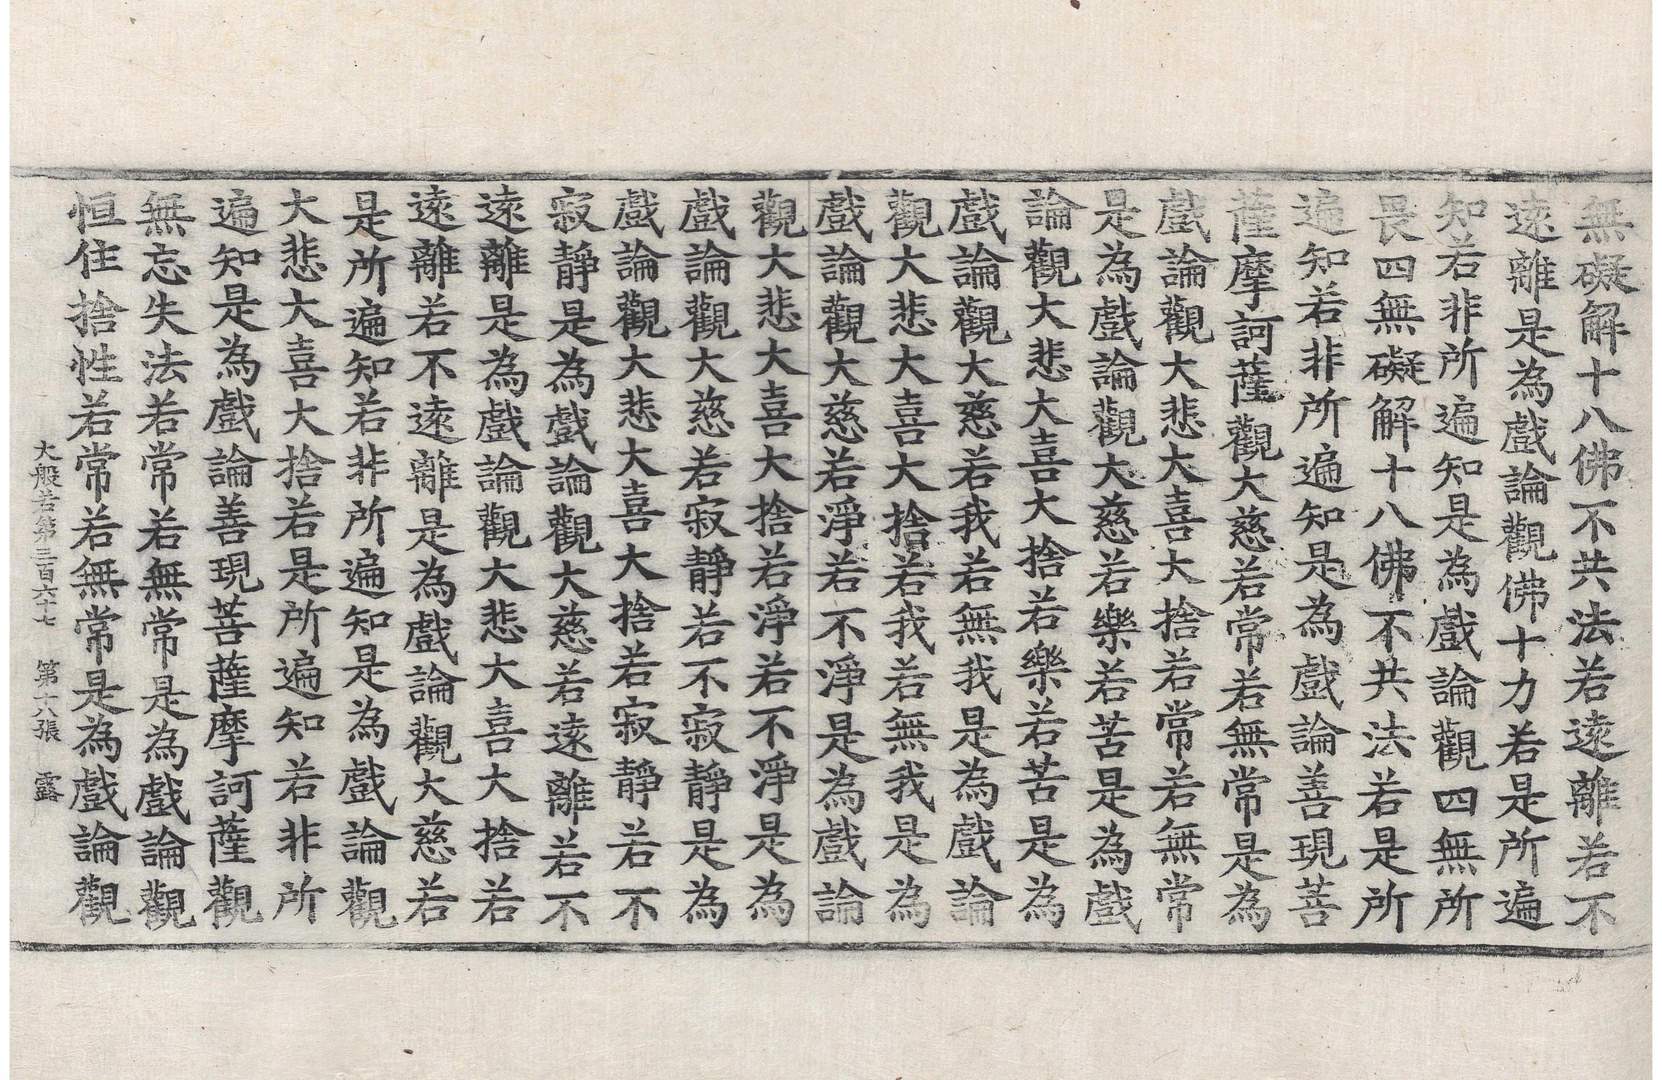 無礙解十八佛不共法若遠離若不
遠離是為戲論觀佛十力若是所遍
知若非所遍知是為戲論觀四無所
畏四無礙解十八佛不共法若是所
遍知若非所遍知是為戲論善現菩
薩摩訶薩觀大慈若常若無常是為
戲論觀大悲大喜大捨若常若無常
是為戲論觀大慈若樂若苦是為戲
論觀大悲大喜大捨若樂若苦是為
戲論觀大慈若我若無我是為戲論
觀大悲大喜大捨若我若無我是為
戲論觀大慈若淨若不淨是為戲論
觀大悲大喜大捨若淨若不淨是為
戲論觀大慈若寂靜若不寂靜是為
戲論觀大悲大喜大捨若寂靜若不
寂靜是為戲論觀大慈若遠離若不
遠離是為戲論觀大悲大喜大捨若
遠離若不遠離是為戲論觀大慈若
是所遍知若非所遍知是為戲論觀
大悲大喜大捨若是所遍知若非所
遍知是為戲論善現菩薩摩訶薩觀
無忘失法若常若無常是為戲論觀
恒住捨性若常若無常是為戲論觀
大般若第三百六十七 第十八張 露